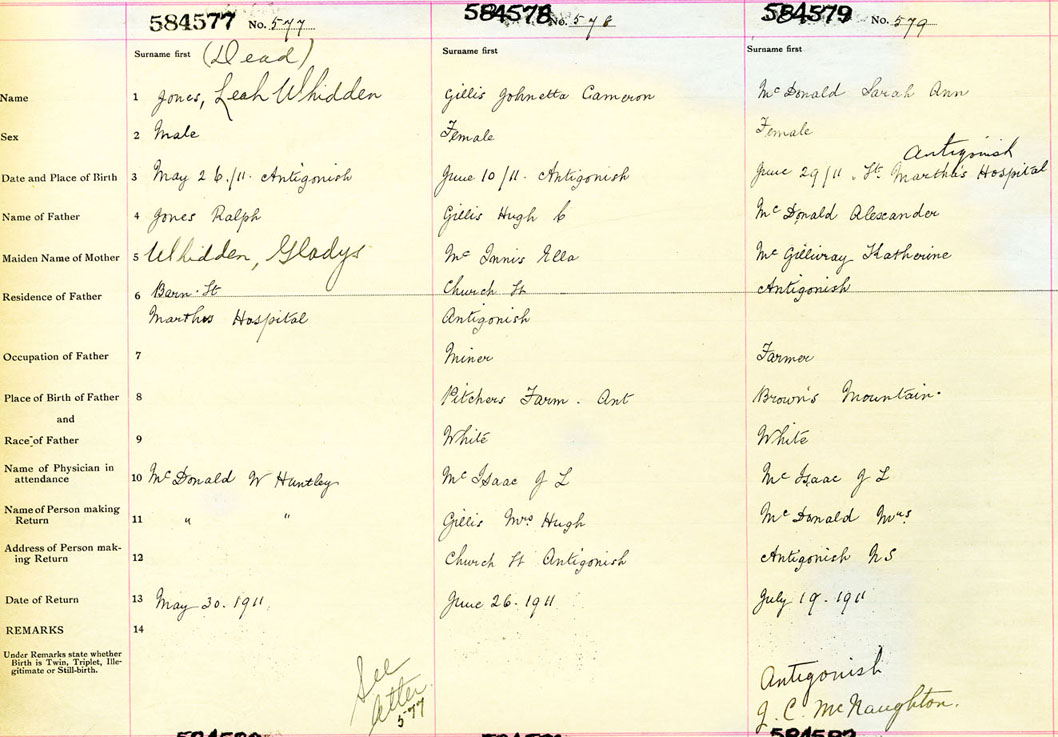 584577 No. 577
584578 No. 578
584579 No. 579
Surname first (Dead)
Surname first
Surname first
Name 1 Jones, Leah Whidden
Gillis Johnetta Cameron
McDonald Sarah Ann
Sex 2 Male
Female
Female
Antigonish
Date and Place of Birth 3 May 26/11. Antigonish
June 10/11. Antigonish
June 29/11. St. Martha's Hospital
Name of Father 4 Jones Ralph
Gillis Hugh C
McDonald Alexander
Maiden Name of Mother 5 Whidden, Gladys
McInnis Ella
McGillivray Katherine
Residence of Father 6 Barn St
Church St
Antigonish
Marthas Hospital
Antigonish
Occupation of Father 7
Miner
Farmer
Place of Birth of Father 8
Pitchers Farm. Ant
Brown's Mountain.
and
Race of Father 9
White
White
Name of Physician in
attendance 10 McDonald W Huntley
McIsaac J L
McIsaac J L
Name of Person making
Return 11 " "
Gillis Mrs Hugh
McDonald Mrs
Address of Person mak-
ing Return 12
Church St Antigonish
Antigonish N S
Date of Return 13 May 30. 1911.
June 26. 1911
July 19. 1911
REMARKS 14
Under Remarks state whether
Birth is Twin, Triplet, Ille-
gitimate or Still-birth.
See
577
Antigonish
J. C. McNaughton.